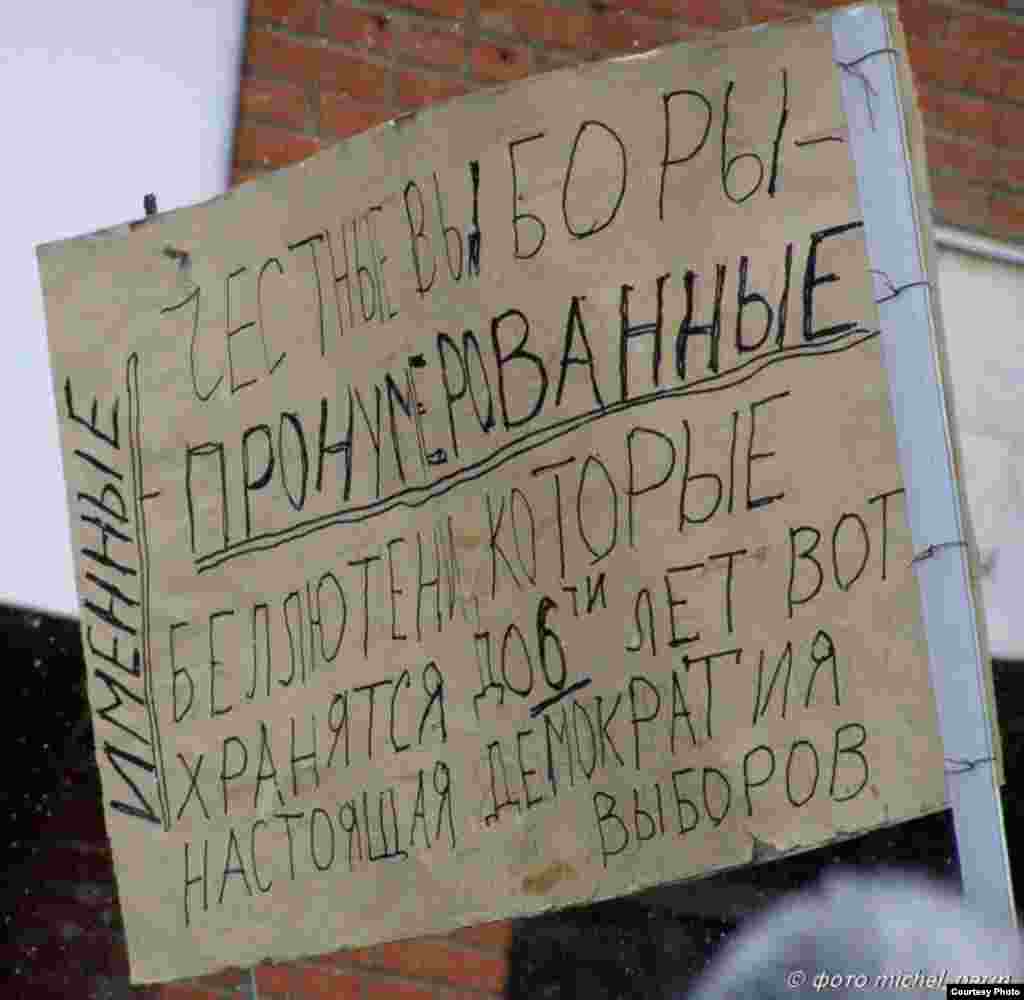 ЧЕСТНЫЕ ВЫБОРЫ-
ИМЕННЫЕ -
ПРОНУМЕРОВАННЫЕ
БЕЛЛЮТЕНИ, КОТОРЫЕ
ХРАНЯТСЯ ДО 6ТИ ЛЕТ ВОТ
НАСТОЯЩАЯ ДЕМОКРАТИЯ
ВЫБОРОВ.
© фото michel
Courtesy Photo